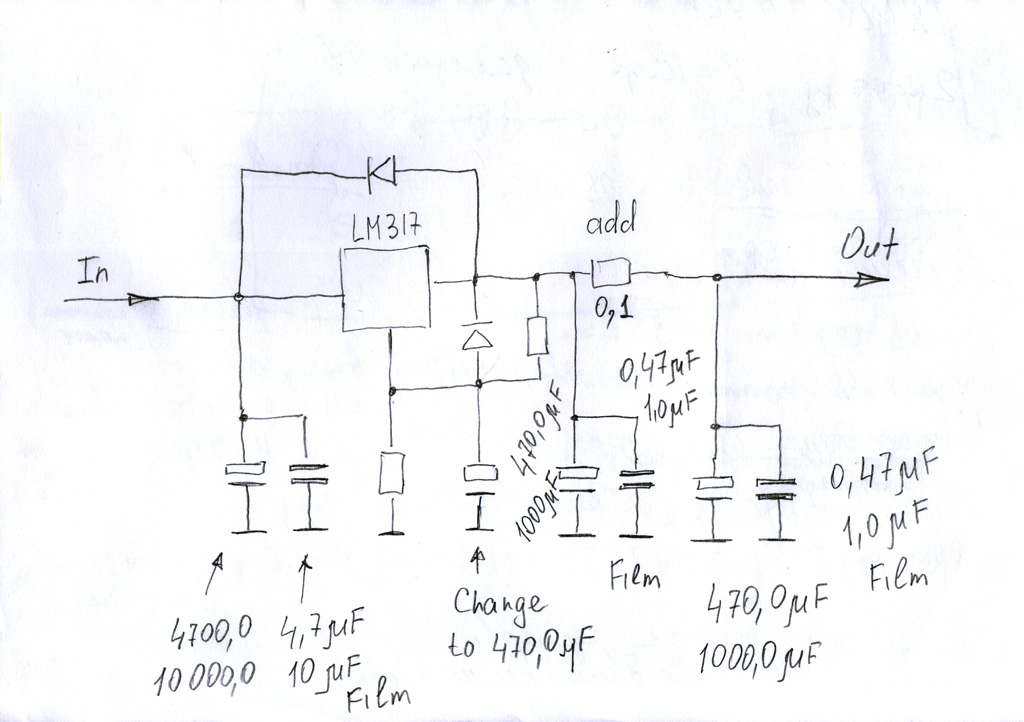 LM317
add
In
Out
0,1
0,47µF
1,0µF
470,0µF
1000µF
0,47µF
1,0µF
Film
Film
4700,0
10000,0
4,7µF
10µF
Film
Change
to 470,0µF
470,0µF
1000,0µF